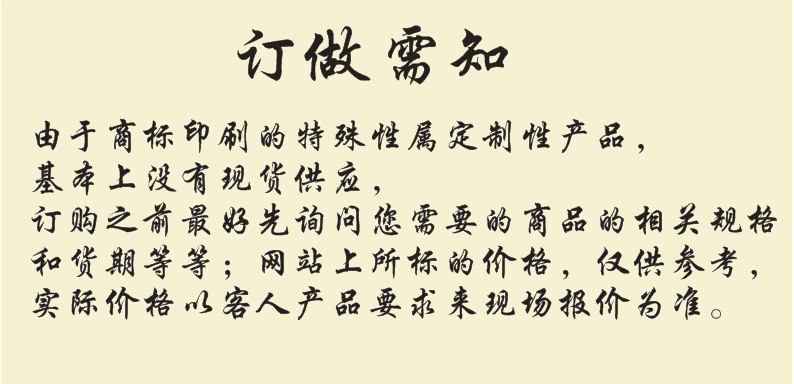 订做需知
由于商标印刷的特殊性属定制性产品，
基本上没有现货供应，
订购之前最好先询问您需要的商品的相关规格
和货期等等；网站上所标的价格，仅供参考，
实际价格以客人产品要求来现场报价为准。